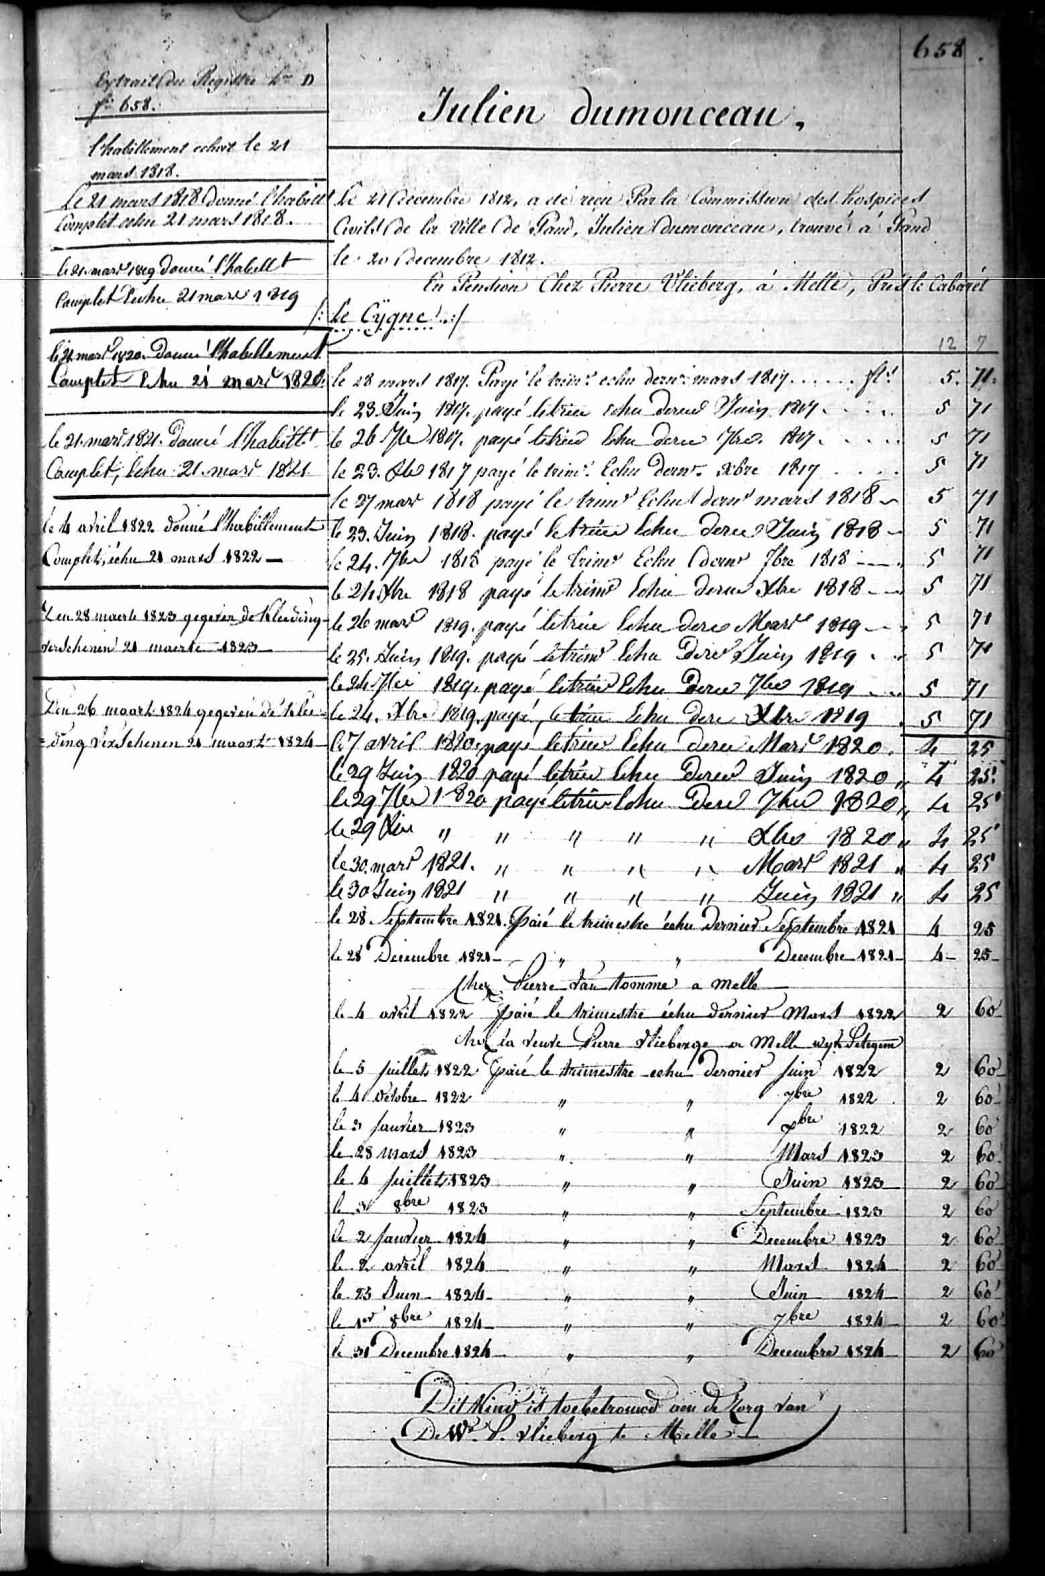 658.
Extrait du Registre Lre D
fo 658.
l'habillement echoit le 21
mars 1818.
Le 21 mars 1818 donné l'habillt
Complet echu 21 mars 1818.
le 21 mars 1819 donné l'habillt
Complet Echu 21 mars 1819
le 21 mars 1820. Donné l'habillement
Complet Echu 21 mars 1820.
le 21 mars 1821. Donné l'habillt
Complet, Echu 21. mars 1821.
le 4 avril 1822 donné l'habillement
Complet, échu 21 mars 1822
Den 28 maerte 1823 gegeven de kleeding
verschenen 21 maerte 1823
Den 26 maart 1824 gegeven de klee=
=ding verschenen 21 maart 1824
Julien dumonceau.
Le 21 Decembre 1812, a été reçu Par la Commission des hospices
Civils de la Ville de Gand, Julien dumonceau, trouvé à Gand
le 20 decembre 1812.
En Pension Chez Pierre Vlieberg, à Melle, Près le Cabarêt
/: Le Cÿgne :/
12 7
le 28 mars 1817. Payé le trimr echu dernr mars 1817 . . . . . fls 5. 71.
le 23. Juin 1817. payé le trim echu derne Juin 1817 . . . . 5 71
le 26 7bre 1817. payé le trim Echu derne 7bre. 1817. . . . . 5 71
le 23. Xbre 1817 payé le trimr. Echu dernr. Xbre 1817 . . . . 5 71
le 27 mars 1818 payé le trimr Echu dernr mars 1818 5 71
le 23. Juin 1818. payé le trim Echu derne Juin 1818 5 71
le 24. 7bre 1818 payé le trimr Echu dernr 7bre 1818 5 71
le 24 Xbre 1818 payé le trimr Echu derne Xbre 1818 5 71
le 26 mars 1819. payé le trim Echu derne Mars 1819 5 71
le 25. Juin 1819. payé le trimr Echu Derne Juin 1819 5 71
le 24 7bre 1819. payé le trim Echu Derne 7bre 1819 5 71
le 24. Xbre 1819. payé, le trim Echu dern Xbre 1819 5 71
le 7 avril 1820. payé le trim Echu derne Mars 1820. 4 25
le 29 Juin 1820 payé le trim Echu Derne Juin 1820 „ 4 25
le 29 7bre 1820 payé le trim Echu Derne 7bre 1820 „ 4 25
le 29 Xbre „ „ „ „ „ Xbre 1820 „ 4 25
le 30. mars 1821. „ „ „ „ Mars 1821 „ 4 25
le 30 Juin 1821 „ „ „ „ Juin 1821 „ 4 25
le 28. Septembre 1821. Paié le trimestre échu dernier Septembre 1821 4 25
le 28 Décembre 1821 „ „ Decembre 1821 4 25
Chez Pierre Van tomme a melle
le 4 avril 1822 Paié le trimestre échu dernier Mars 1822 2 60
chez la veuve Pierre Vlieberge a Melle wyk
le 5 juillet 1822 Paié le trimestre echu dernier Juin 1822 2 60
le 4 Octobre 1822 „ „ 7bre 1822 2 60
le 3 Janvier 1823 „ „ Xbre 1822 2 60
le 28 mars 1823 „ „ Mars 1823 2 60
le 4 Juillet 1823 „ „ Juin 1823 2 60
le 3 8bre 1823 „ „ Septembre 1823 2 60
le 2 Janvier 1824 „ „ Decembre 1823 2 60
le 2 avril 1824 „ „ Mars 1824 2 60
le 23 Juin 1824 „ „ Juin 1824 2 60
le 1er 8bre 1824 „ „ 7bre 1824 2 60
le 31 Decembre 1824 „ „ Decembre 1824 2 60
Dit Kind is toebetrouwd aen de Zorg van
De We P. Vlieberg te Melle